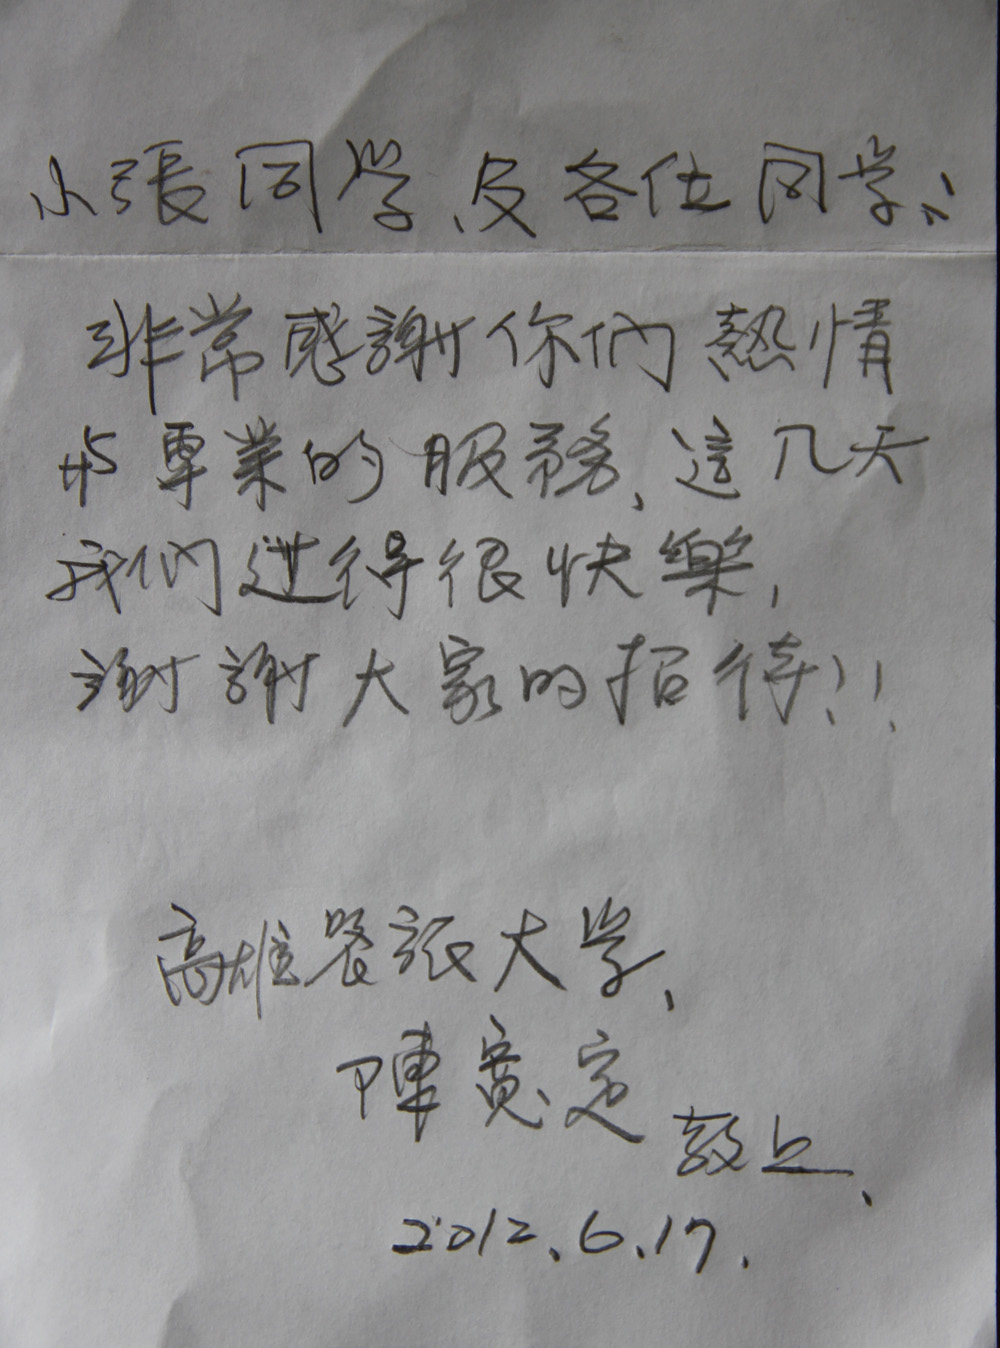 小張同学、及各位同学：
非常感謝你们熱情
与專業的服務、這几天
我们过得很快樂，
謝謝大家的招待！！
高雄餐旅大学、
陳寬定
敬上、
2012.6.17.